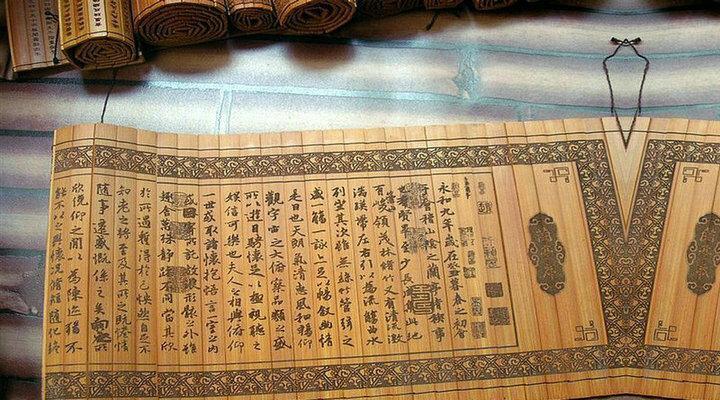 永和九年歲在癸丑暮春之初會
于會稽山陰之蘭亭脩稧事
也羣賢畢至少長咸集此地
有峻領茂林脩竹又有清流激
湍暎帶左右引以為流觴曲水
列坐其次雖無絲竹管弦之
盛一觴一詠亦足以暢敘幽情
是日也天朗氣清惠風和暢仰
觀宇宙之大俯察品類之盛
所以遊目騁懷足以極視聽之
娛信可樂也夫人之相與俯仰
一世或取諸懷抱悟言一室之內
或因寄所託放浪形骸之外雖
趣舍萬殊靜躁不同當其欣
於所遇暫得於己快然自足不
知老之將至及其所之既惓情
隨事遷感慨係之矣向之所
欣俛仰之間以為陳迹猶不
能不以之興懷況脩短隨化終